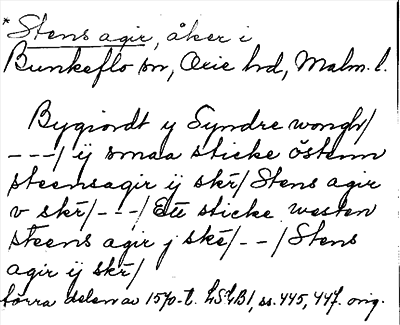 *Stens agir, åker i
Bunkeflo sn, Oxie hd, Malm. l.
Bygiordt y Syndre wongh/
---/ ij smaa sticke östenn
steensagir ij skr/ Stens agir
v skr/---/ Ett sticke westen
steens agir j skr/--/ Stens
agir ij skr/
förra delen av 1570-t. LSLB1, ss. 445, 447. orig.